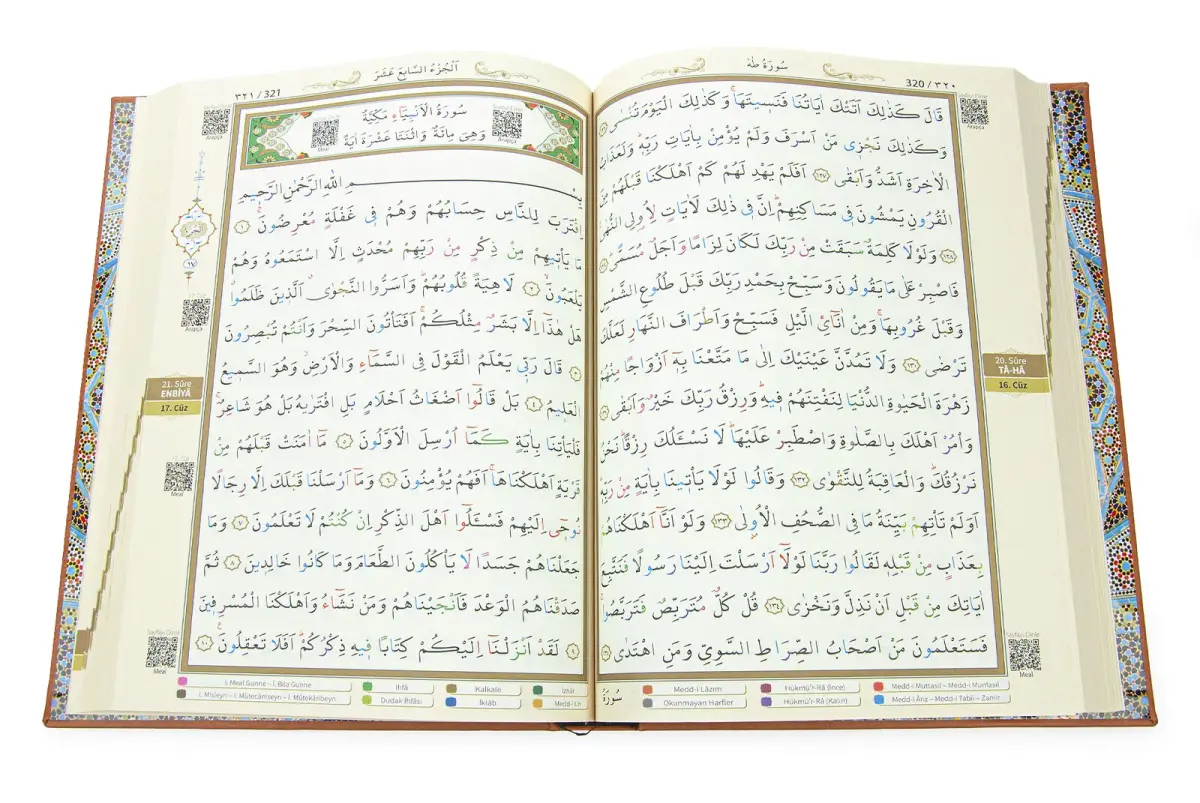 سُورَةُ طٰهٰ
320 / ٣٢٠
Sayfayı Dinle
Arapça
قَالَ كَذٰلِكَ اَتَتْكَ اٰيَاتُنَا فَنَسٖيتَهَاۚ وَكَذٰلِكَ الْيَوْمَ تُنْسٰى
وَكَذٰلِكَ نَجْزٖى مَنْ اَسْرَفَ وَلَمْ يُؤْمِنْ بِاٰيَاتِ رَبِّهٖؕ وَلَعَذَابُ
الْاٰخِرَةِ اَشَدُّ وَاَبْقٰى ﴿١٢٧﴾ اَفَلَمْ يَهْدِ لَهُمْ كَمْ اَهْلَكْنَا قَبْلَهُمْ مِنَ
الْقُرُونِ يَمْشُونَ فٖى مَسَاكِنِهِمْؕ اِنَّ فٖى ذٰلِكَ لَاٰيَاتٍ لِاُولِى النُّهٰى
﴿١٢٨﴾ وَلَوْلَا كَلِمَةٌ سَبَقَتْ مِنْ رَبِّكَ لَكَانَ لِزَامًا وَاَجَلٌ مُسَمًّى
فَاصْبِرْ عَلٰى مَا يَقُولُونَ وَسَبِّحْ بِحَمْدِ رَبِّكَ قَبْلَ طُلُوعِ الشَّمْسِ
وَقَبْلَ غُرُوبِهَاۚ وَمِنْ اٰنَٓائِ الَّيْلِ فَسَبِّحْ وَاَطْرَافَ النَّهَارِ لَعَلَّكَ
تَرْضٰى ﴿١٣٠﴾ وَلَا تَمُدَّنَّ عَيْنَيْكَ اِلٰى مَا مَتَّعْنَا بِهٖٓ اَزْوَاجًا مِنْهُمْ
زَهْرَةَ الْحَيٰوةِ الدُّنْيَا لِنَفْتِنَهُمْ فٖيهِؕ وَرِزْقُ رَبِّكَ خَيْرٌ وَاَبْقٰى
وَاْمُرْ اَهْلَكَ بِالصَّلٰوةِ وَاصْطَبِرْ عَلَيْهَاؕ لَا نَسْـَٔلُكَ رِزْقًاؕ نَحْنُ
نَرْزُقُكَؕ وَالْعَاقِبَةُ لِلتَّقْوٰى ﴿١٣٢﴾ وَقَالُوا لَوْلَا يَاْتٖينَا بِاٰيَةٍ مِنْ رَبِّهٖؕ
اَوَلَمْ تَاْتِهِمْ بَيِّنَةُ مَا فِى الصُّحُفِ الْاُولٰى ﴿١٣٣﴾ وَلَوْ اَنَّٓا اَهْلَكْنَاهُمْ
بِعَذَابٍ مِنْ قَبْلِهٖ لَقَالُوا رَبَّنَا لَوْلَٓا اَرْسَلْتَ اِلَيْنَا رَسُولًا فَنَتَّبِعَ
اٰيَاتِكَ مِنْ قَبْلِ اَنْ نَذِلَّ وَنَخْزٰى ﴿١٣٤﴾ قُلْ كُلٌّ مُتَرَبِّصٌ فَتَرَبَّصُواۚ
فَسَتَعْلَمُونَ مَنْ اَصْحَابُ الصِّرَاطِ السَّوِىِّ وَمَنِ اهْتَدٰى
20. Sûre
TÂ-HÂ
16. Cüz
Sayfayı Dinle
Meal
Medd-i Lâzım
Hükmü'r-Râ (İnce)
Medd-i Muttasıl – Medd-i Munfasıl
Okunmayan Harfler
Hükmü'r-Râ (Kalın)
Medd-i Ârız – Medd-i Tabîi – Zamir
سُورَةُ
اَلْجُزْءُ السَّابِعَ عَشَرَ
٣٢١ / 321
Sayfayı Dinle
Arapça
سُورَةُ الْاَنْبِيَٓاءِ مَكِّيَّةٌ
وَهِىَ مِائَةٌ وَاثْنَتَا عَشْرَةَ اٰيَةً
Meal
Arapça
بِسْمِ اللّٰهِ الرَّحْمٰنِ الرَّحٖيمِ
اِقْتَرَبَ لِلنَّاسِ حِسَابُهُمْ وَهُمْ فٖى غَفْلَةٍ مُعْرِضُونَۚ ﴿١﴾
مَا يَاْتٖيهِمْ مِنْ ذِكْرٍ مِنْ رَبِّهِمْ مُحْدَثٍ اِلَّا اسْتَمَعُوهُ وَهُمْ
يَلْعَبُونَۙ ﴿٢﴾ لَاهِيَةً قُلُوبُهُمْؕ وَاَسَرُّوا النَّجْوٰىۗ اَلَّذٖينَ ظَلَمُواۗ
هَلْ هٰذَٓا اِلَّا بَشَرٌ مِثْلُكُمْۚ اَفَتَاْتُونَ السِّحْرَ وَاَنْتُمْ تُبْصِرُونَ
﴿٣﴾ قَالَ رَبّٖى يَعْلَمُ الْقَوْلَ فِى السَّمَٓاءِ وَالْاَرْضِؗ وَهُوَ السَّمٖيعُ
الْعَلٖيمُ ﴿٤﴾ بَلْ قَالُٓوا اَضْغَاثُ اَحْلَامٍ بَلِ افْتَرٰيهُ بَلْ هُوَ شَاعِرٌۚ
فَلْيَاْتِنَا بِاٰيَةٍ كَمَٓا اُرْسِلَ الْاَوَّلُونَ ﴿٥﴾ مَٓا اٰمَنَتْ قَبْلَهُمْ مِنْ
قَرْيَةٍ اَهْلَكْنَاهَاۚ اَفَهُمْ يُؤْمِنُونَ ﴿٦﴾ وَمَٓا اَرْسَلْنَا قَبْلَكَ اِلَّا رِجَالًا
نُوحٖٓى اِلَيْهِمْ فَسْـَٔلُٓوا اَهْلَ الذِّكْرِ اِنْ كُنْتُمْ لَا تَعْلَمُونَ ﴿٧﴾ وَمَا
جَعَلْنَاهُمْ جَسَدًا لَا يَاْكُلُونَ الطَّعَامَ وَمَا كَانُوا خَالِدٖينَ ﴿٨﴾ ثُمَّ
صَدَقْنَاهُمُ الْوَعْدَ فَاَنْجَيْنَاهُمْ وَمَنْ نَشَٓاءُ وَاَهْلَكْنَا الْمُسْرِفٖينَ
﴿٩﴾ لَقَدْ اَنْزَلْنَٓا اِلَيْكُمْ كِتَابًا فٖيهِ ذِكْرُكُمْؕ اَفَلَا تَعْقِلُونَ ﴿١٠﴾
١٧
Arapça
21. Sûre
ENBİYÂ
17. Cüz
Meal
Sayfayı Dinle
Meal
İ. Meal Gunne – İ. Bila Gunne
İhfâ
Kalkale
İzhâr
İ. Misleyn – İ. Mütecâniseyn – İ. Mütekâribeyn
Dudak İhfâsı
İklâb